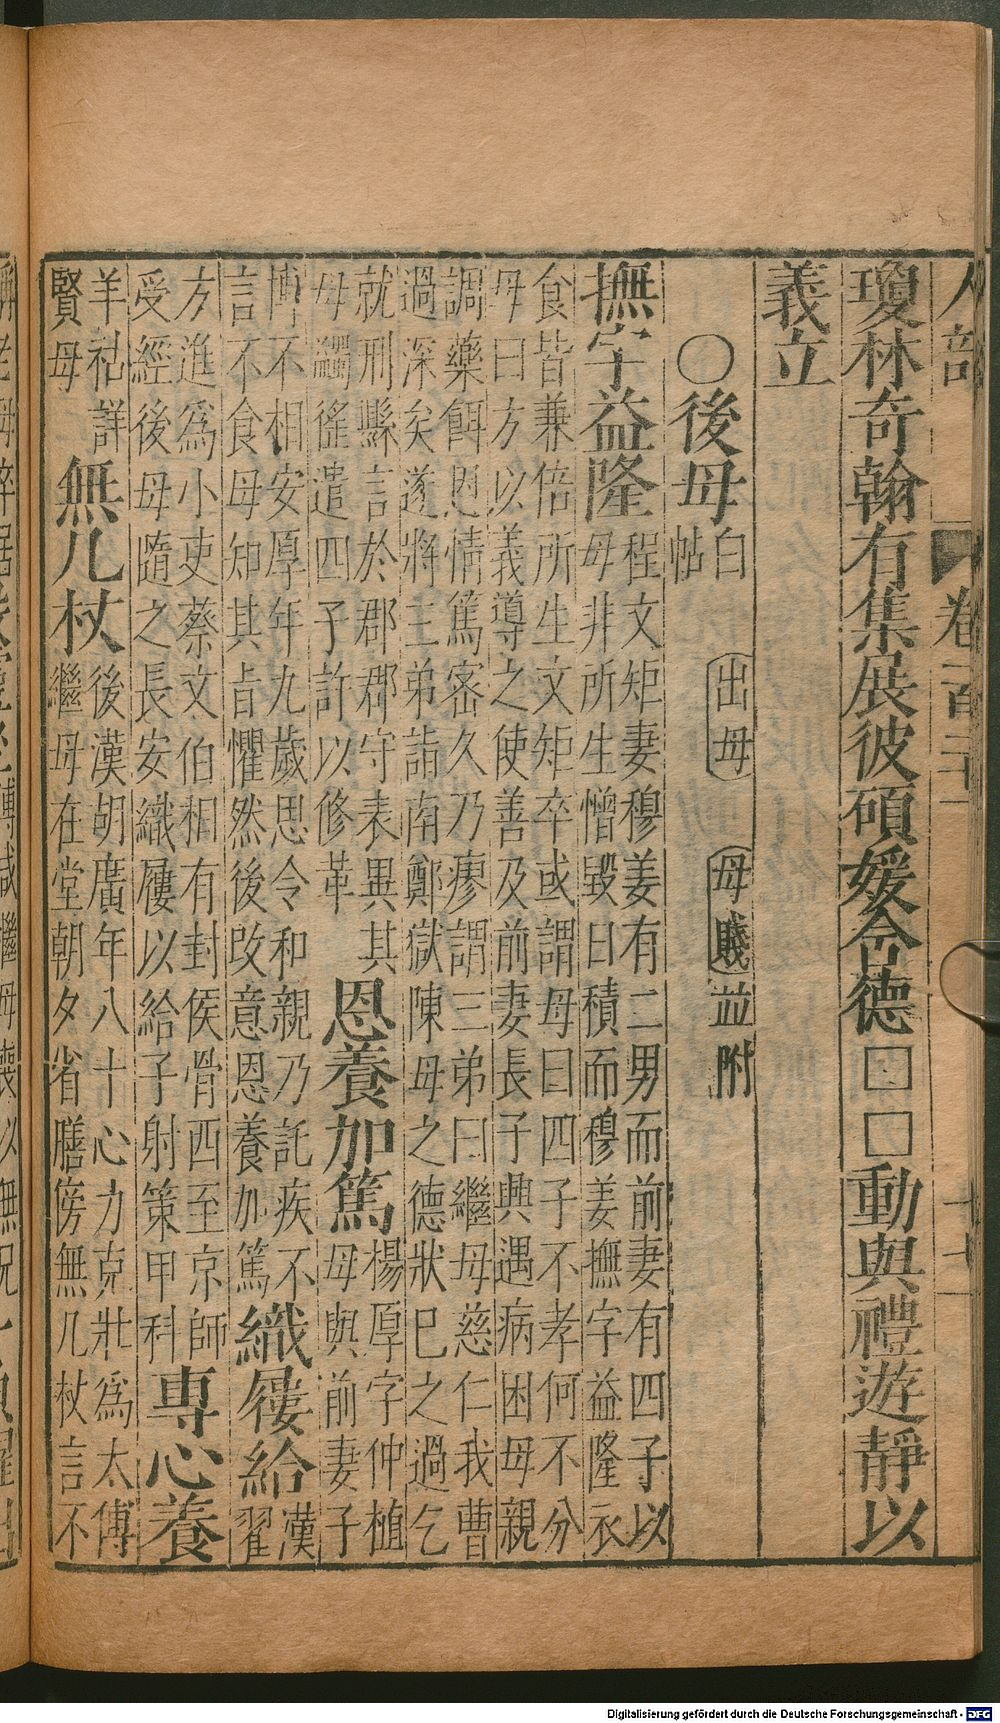 瓊林奇翰有集展彼碩媛含德□□動與禮遊靜以
義立
○後母白帖 出母 母賤並附
撫字益隆程文矩妻穆姜有二男而前妻有四子以
母非所生憎毀日積而穆姜撫字益隆衣
食皆兼倍所生文矩卒或謂母曰四子不孝何不分
母曰方以義導之使善及前妻長子興遇病困母親
調藥餌恩情篤密久乃瘳謂三弟曰繼母慈仁我曹
過深矣遂將三弟詣南鄭獄陳母之德狀巳之過乞
就刑縣言於郡郡守表異其
母蠲徭遣四子許以修革
恩養加篤楊厚字仲植
母與前妻子
博不相安厚年九歲思令和親乃託疾不
言不食母知其旨懼然後改意恩養加篤
織屨給漢翟
方進爲小吏蔡文伯相有封侯骨西至京師
受經後母隨之長安織屨以給子射策甲科
專心養
羊祜詳
賢母
無几杖後漢胡廣年八十心力克壯爲太傅
繼母在堂朝夕省膳傍無几杖言不